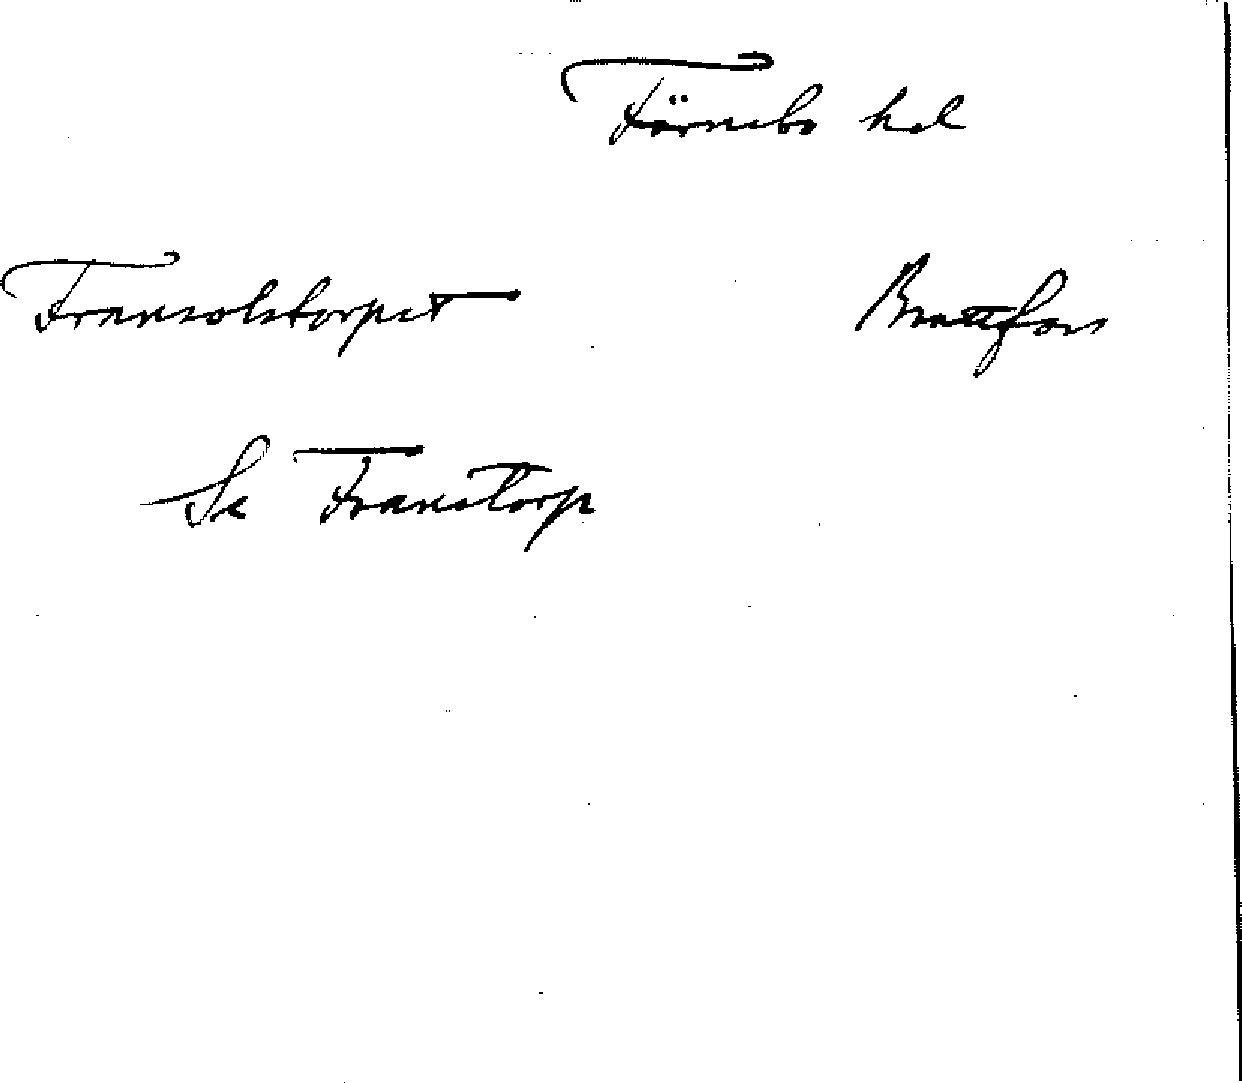 Färnebo hd
Fransolstorpet Brattfors
Se Franstorp